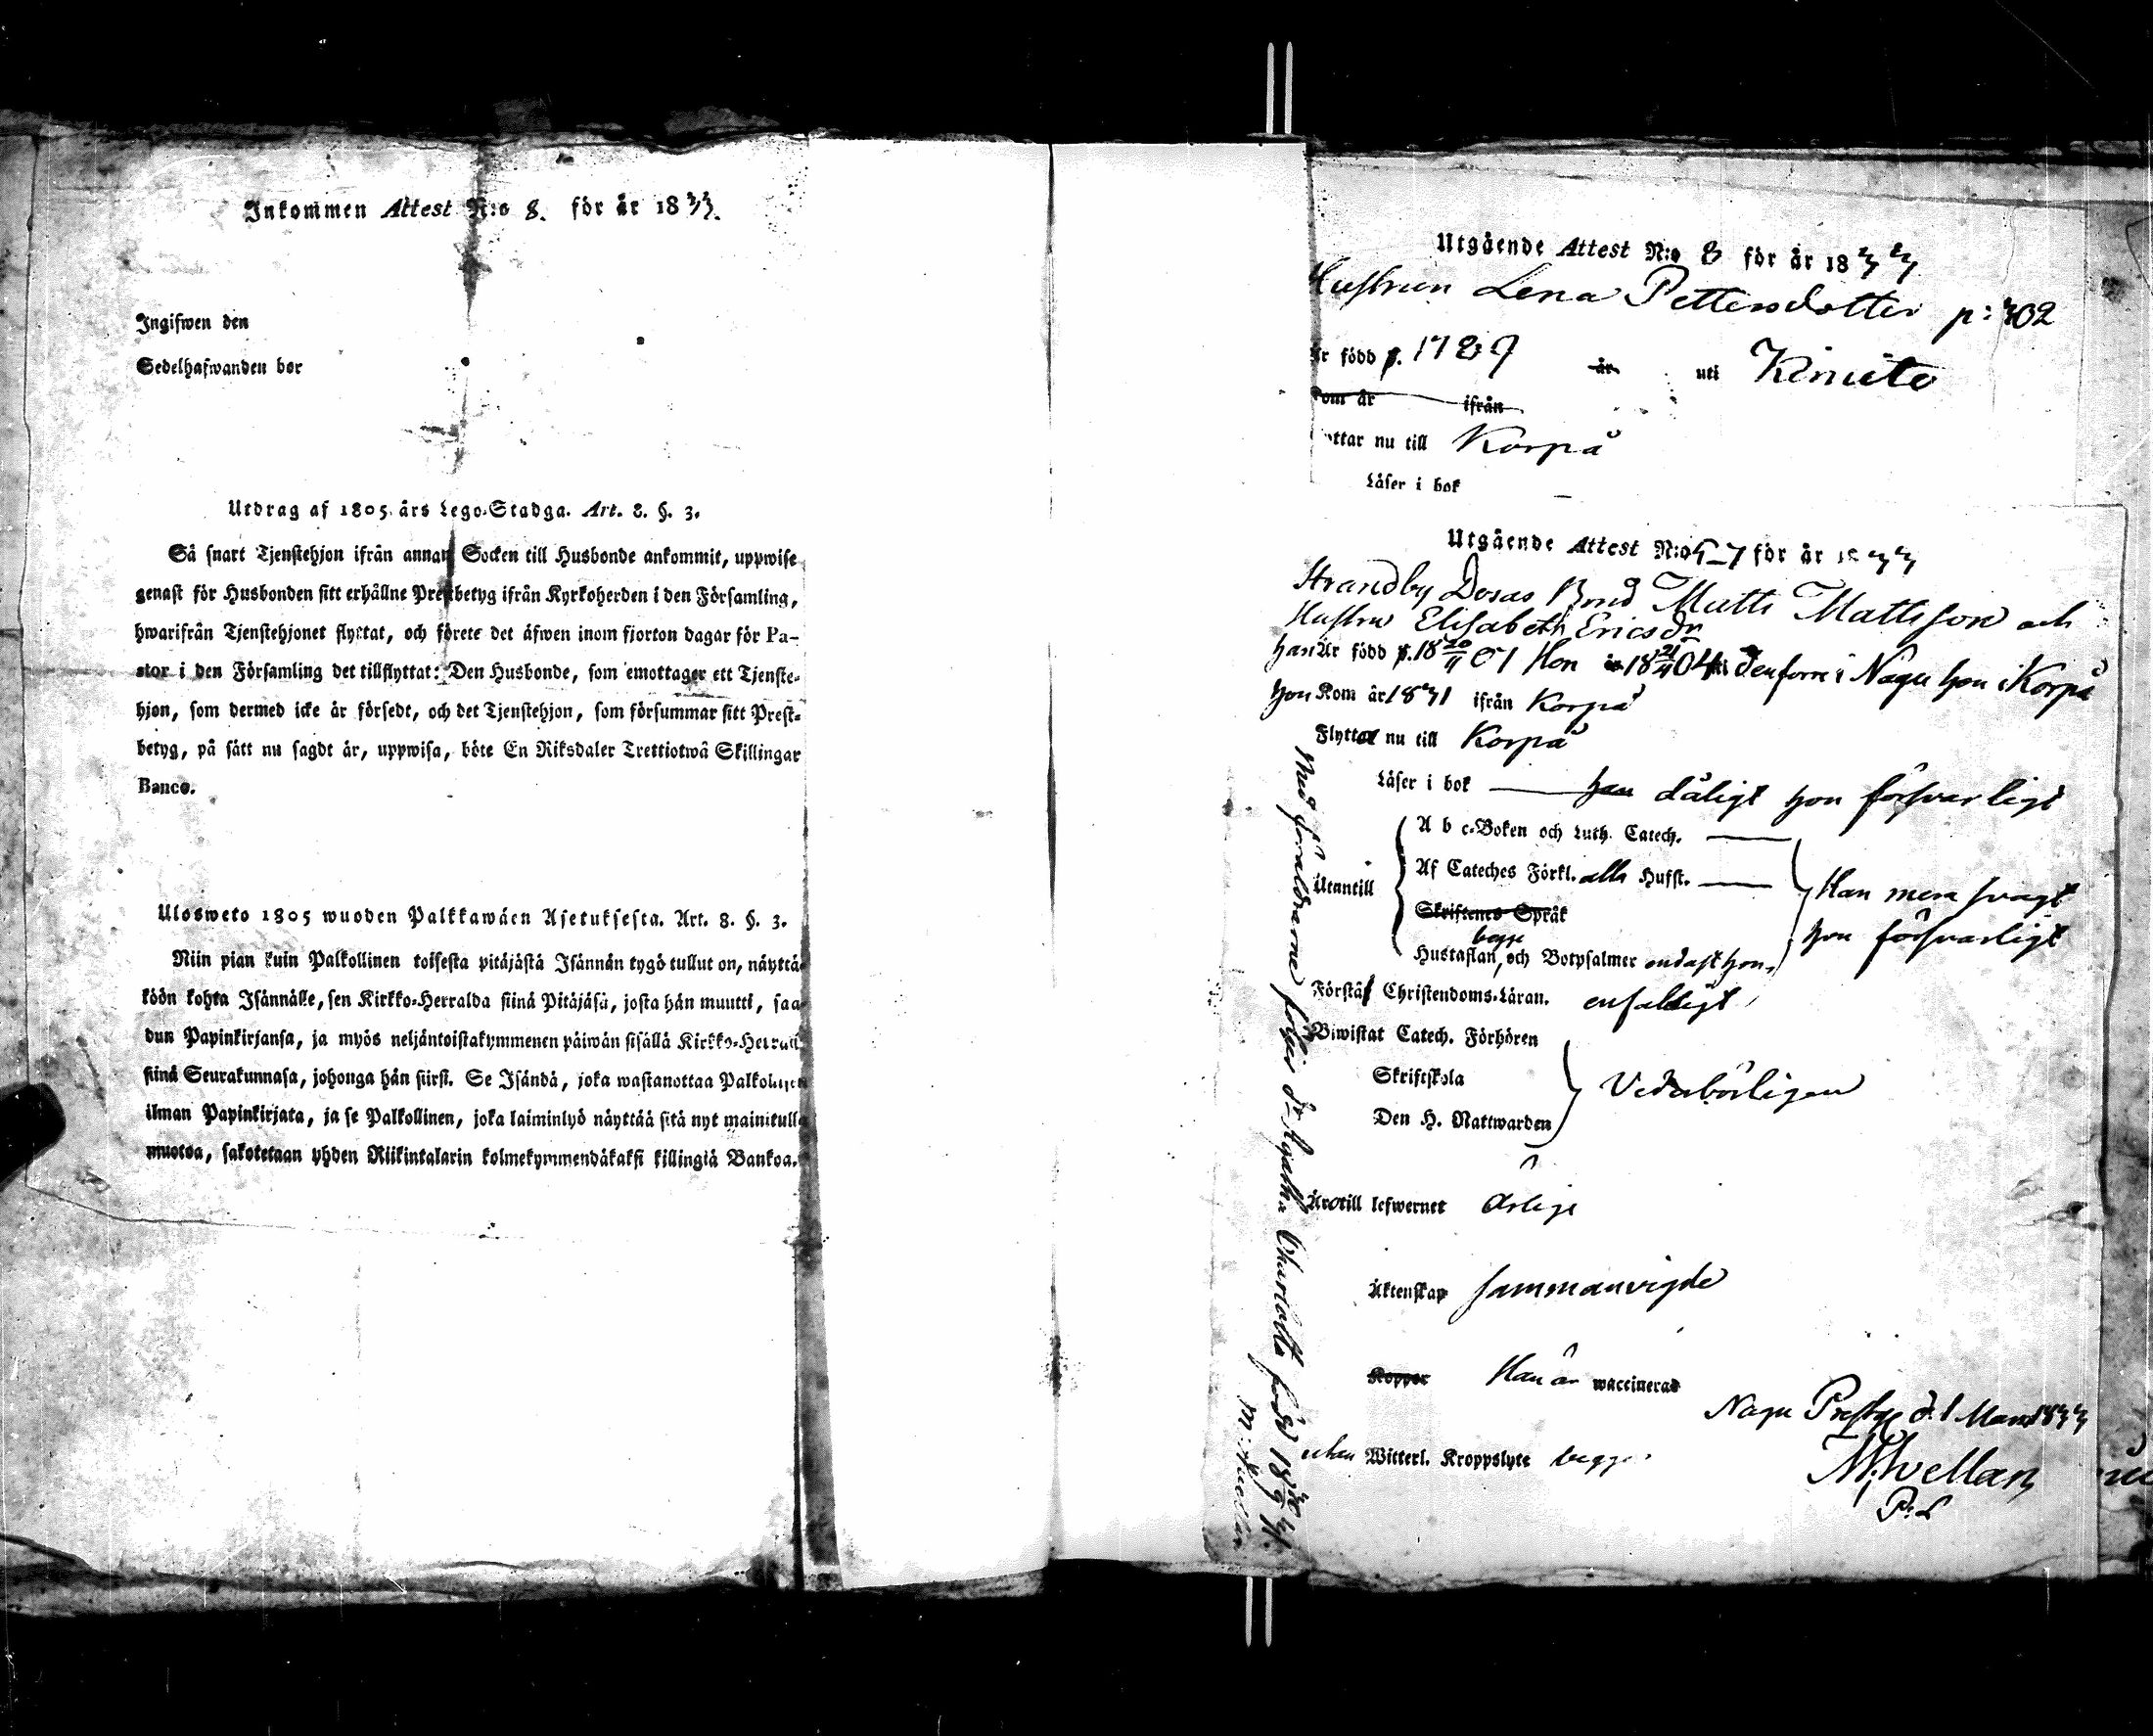 Inkommen Attest N:o 8. för år 1833.
Ingifwen den
Sedelhafwanden bor
Utdrag af 1805 års Lego-Stadga. Art. 8. §. 3.
Så snart Tjenstehjon ifrån annan Socken till Husbonde ankommit, uppwise
genast för Husbonden sitt erhållne Prestbetyg ifrån Kyrkoherden i den Församling,
hwarifrån Tjenstehjonet flyttat, och förete det äfwen inom fjorton dagar för Pa-
stor i den Församling det tillflyttat: Den Husbonde, som emottager ett Tjenste-
hjon, som dermed icke är försedt, och det Tjenstehjon, som försummar sitt Prest-
betyg, på sätt nu sagdt är, uppwisa, böte En Riksdaler Trettiotwå Skillingar
Banco.
Ulosweto 1805 wuoden Palkkawäen Asetuksesta. Art. 8. §. 3.
Niin pian kuin Palkollinen toisesta pitäjästä Isännän tygö tullut on, näyttä-
köön kohta Isännälle, sen Kirkko-Herralda siinä Pitäjäsä, josta hän muutti, saa-
dun Papinkirjansa, ja myös neljäntoistakymmenen päiwän sisällä Kirkko-Herralle
siinä Seurakunnasa, johonga hän siirsi. Se Isändä, joka wastanottaa Palkollisen
ilman Papinkirjata, ja se Palkollinen, joka laiminlyö näyttää sitä nyt mainitulla
muotoa, sakotetaan yhden Riikintalarin kolmekymmendäkaksi killingiä Bankoa.
Utgående Attest N:o 8 för år 1833
Hustrun Lena Pettersdotter p: 302
Är född 1789 år uti Kimito
Kom år ifrån
Flyttar nu till Korpå
Läser i bok
Utgående Attest N:o 5-7 för år 1833
Strandby Bond Matts Mattsson och
Hustru Elisabeth Ericsdr
han Är född 18 20/11 01 Hon 18 21/11 04 i Nagu hon i Korpå
hon Kom år 1831 ifrån Korpå
Flyttar nu till Korpå
Läser i bok han dåligt hon försvarligt
A b c-Boken och Luth. Catech.
Utantill Af Cateches Förkl. alla Husst. Han mera svagt
Skriftenes Språk
begge hon försvarligt
Hustaflan, och Botpsalmer endast hon
Förstå Christendoms-Läran. enfaldigt
Biwistat Catech. Förhören
Skriftskola Vederbörligen
Den H. Nattwarden
Äro till lefwernet ärlige
Äktenskap sammanvigde
Koppor Han är waccinerad
Nagu Prestg d. 1 Mars 1833
utan Witterl. Kroppslyte begge
Med föräldrarne följer dr Agatha Charlotta född 18